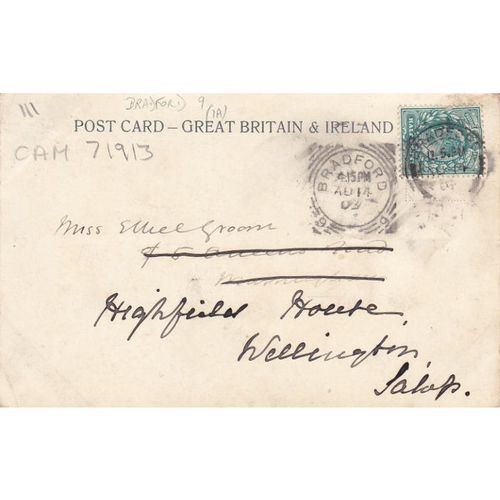 BRADFORD 9
(7A)
POST CARD – GREAT BRITAIN & IRELAND
CAM 71913
BRADFORD
4.15PM
AU 14
03
9 9
Miss Ethel Groom
Highfield House,
Wellington,
Salop.